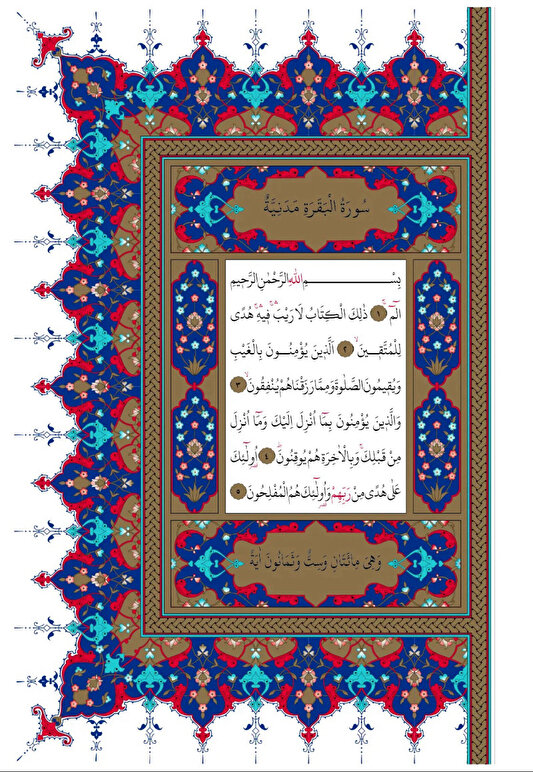 سُورَةُ الْبَقَرَةِ مَدَنِيَّةٌ
بِسْمِ اللّٰهِ الرَّحْمٰنِ الرَّحِيمِ
الٓمٓ ۚ ﴿١﴾ ذٰلِكَ الْكِتَابُ لَا رَيْبَ ۛ فِيهِ ۛ هُدًى
لِلْمُتَّقِينَ ۙ ﴿٢﴾ اَلَّذِينَ يُؤْمِنُونَ بِالْغَيْبِ
وَيُقِيمُونَ الصَّلٰوةَ وَمِمَّا رَزَقْنَاهُمْ يُنْفِقُونَ ۙ ﴿٣﴾
وَالَّذِينَ يُؤْمِنُونَ بِمَٓا اُنْزِلَ اِلَيْكَ وَمَٓا اُنْزِلَ
مِنْ قَبْلِكَ ۚ وَبِالْاٰخِرَةِ هُمْ يُوقِنُونَ ۜ ﴿٤﴾ اُو۬لٰٓئِكَ
عَلٰى هُدًى مِنْ رَبِّهِمْ وَاُو۬لٰٓئِكَ هُمُ الْمُفْلِحُونَ ﴿٥﴾
وَهِىَ مِائَتَانِ وَسِتٌّ وَثَمَانُونَ اٰيَةً